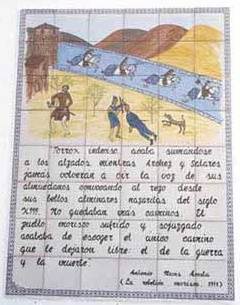 Torrox indeciso, acaba sumandose
a los alzados, mientras Archez y Salares
jamas volveran a oir la voz de sus
almuedanos convocando al rezo desde
sus bellos alminares nazaries del siglo
XIII. No quedaban mas caminos. El
pueblo morisco sufrido y sojuzgado
acababa de escoger el unico camino
que le dejaron libre: el de la guerra
y la muerte.
Antonio
(La rebelion morisca,